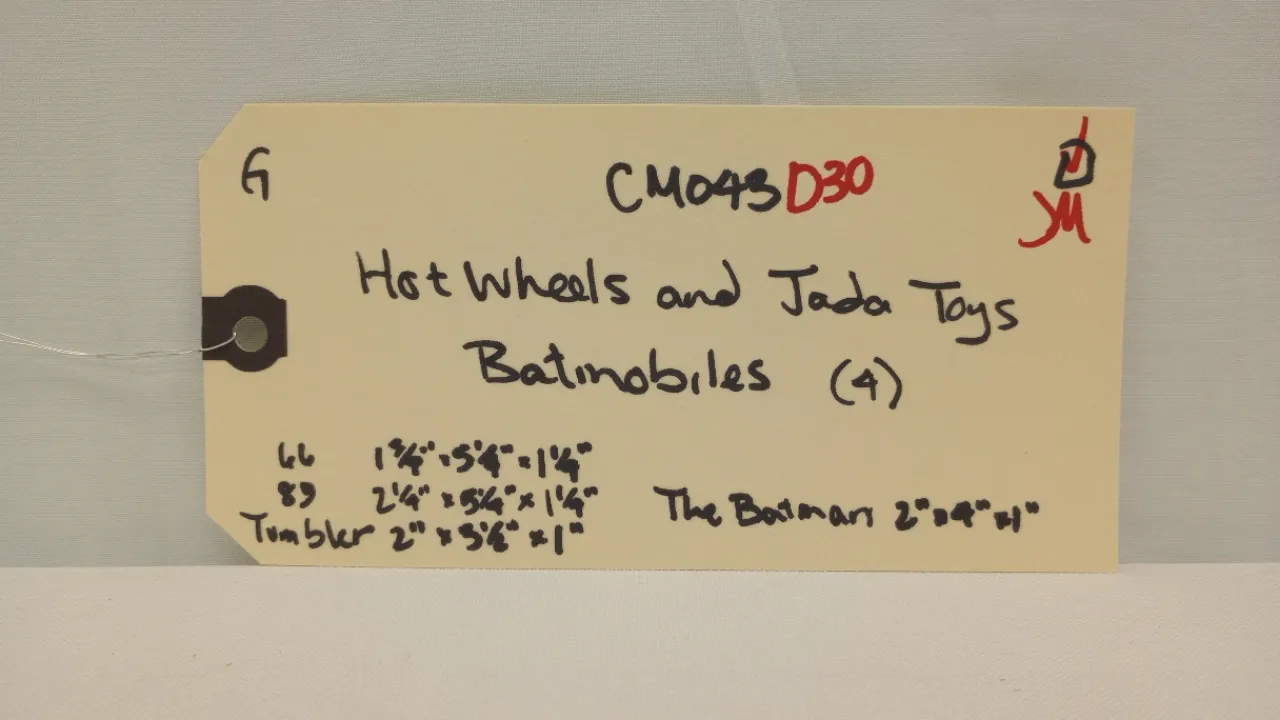 G
CM043D30
JM
Hot Wheels and Jada Toys
Batmobiles (4)
66 1 3/4" × 5 1/4" × 1 1/4"
89 2 1/4" × 5 1/4" × 1 1/4"
Tumbler 2" × 5 1/2" × 1"
The Batman 2" × 4" × 1"